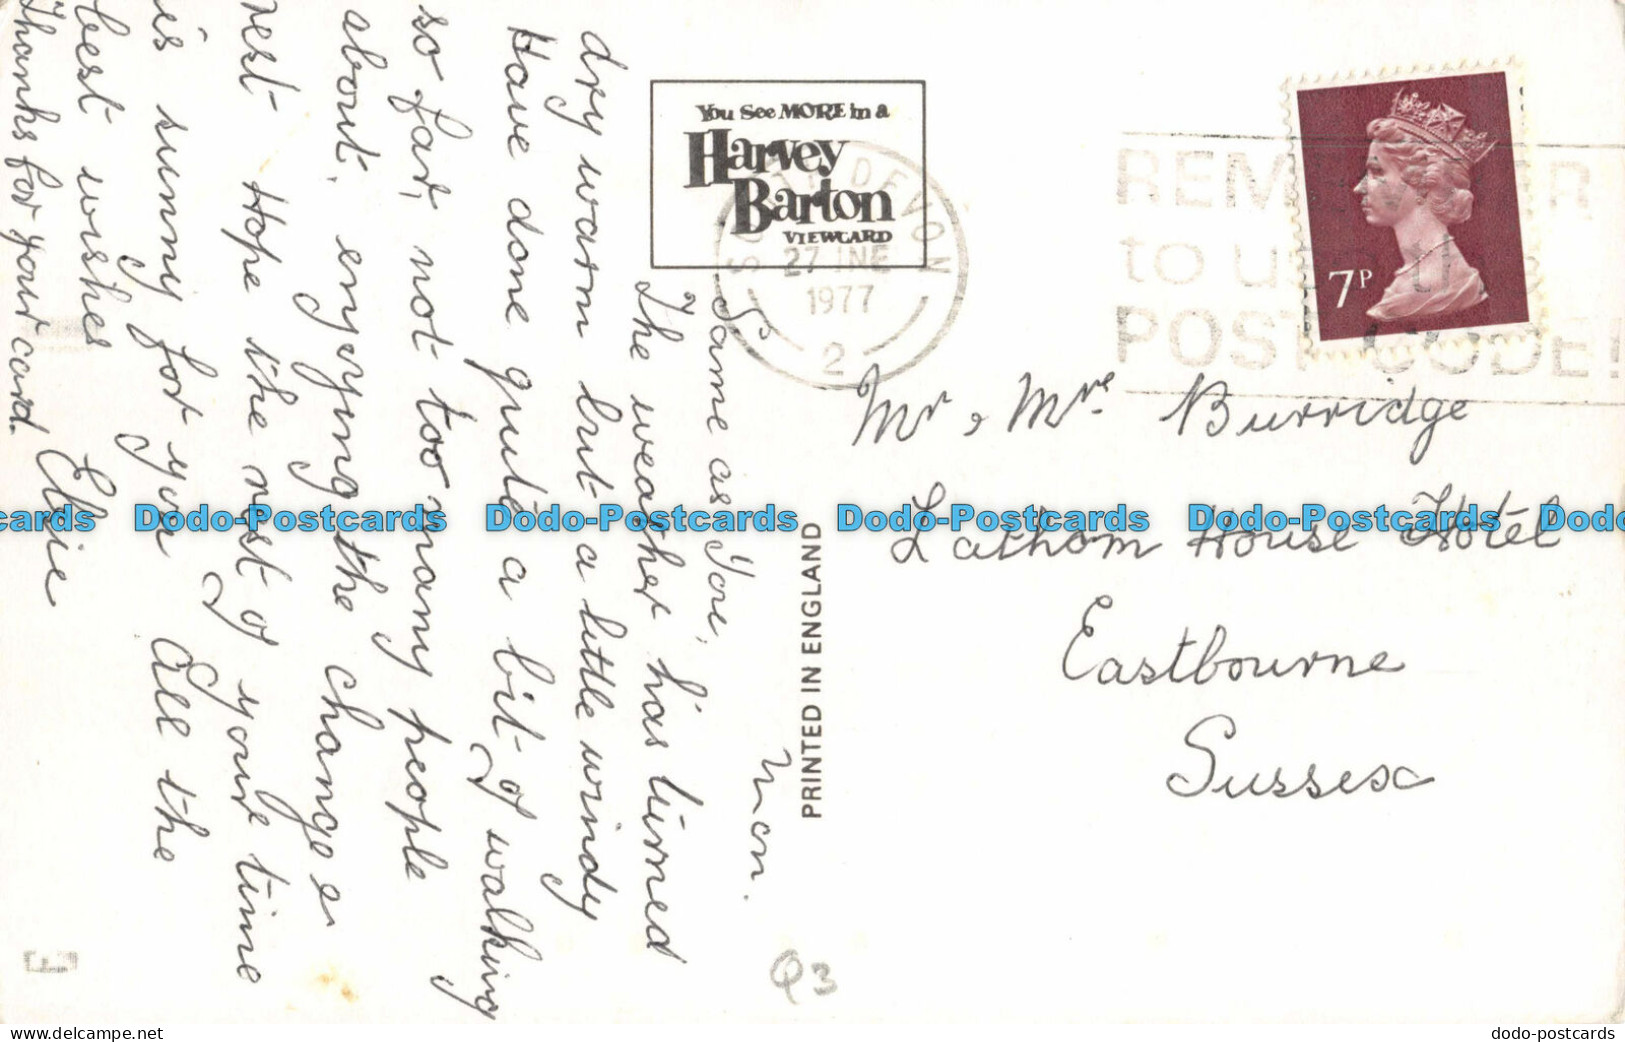 Mon.
Same as you,
The weather has turned
dry warm but a little windy
Have done quite a bit of walking
so far, not too many people
about, enjoying the change &
rest Hope the rest of your time
is sunny for you All the
best wishes
Elsie
Thanks for your card.
You See MORE in a
Harvey
Barton
VIEWCARD
SOUTH DEVON
27 JNE
1977
2
REMEMBER
to use the
POST CODE!
7P
Mr & Mrs Burridge
Lathom House Hotel
Eastbourne
Sussex
PRINTED IN ENGLAND
Q3
Dodo-Postcards Dodo-Postcards Dodo-Postcards Dodo-Postcards
https://www.delcampe.net
dodo-postcards